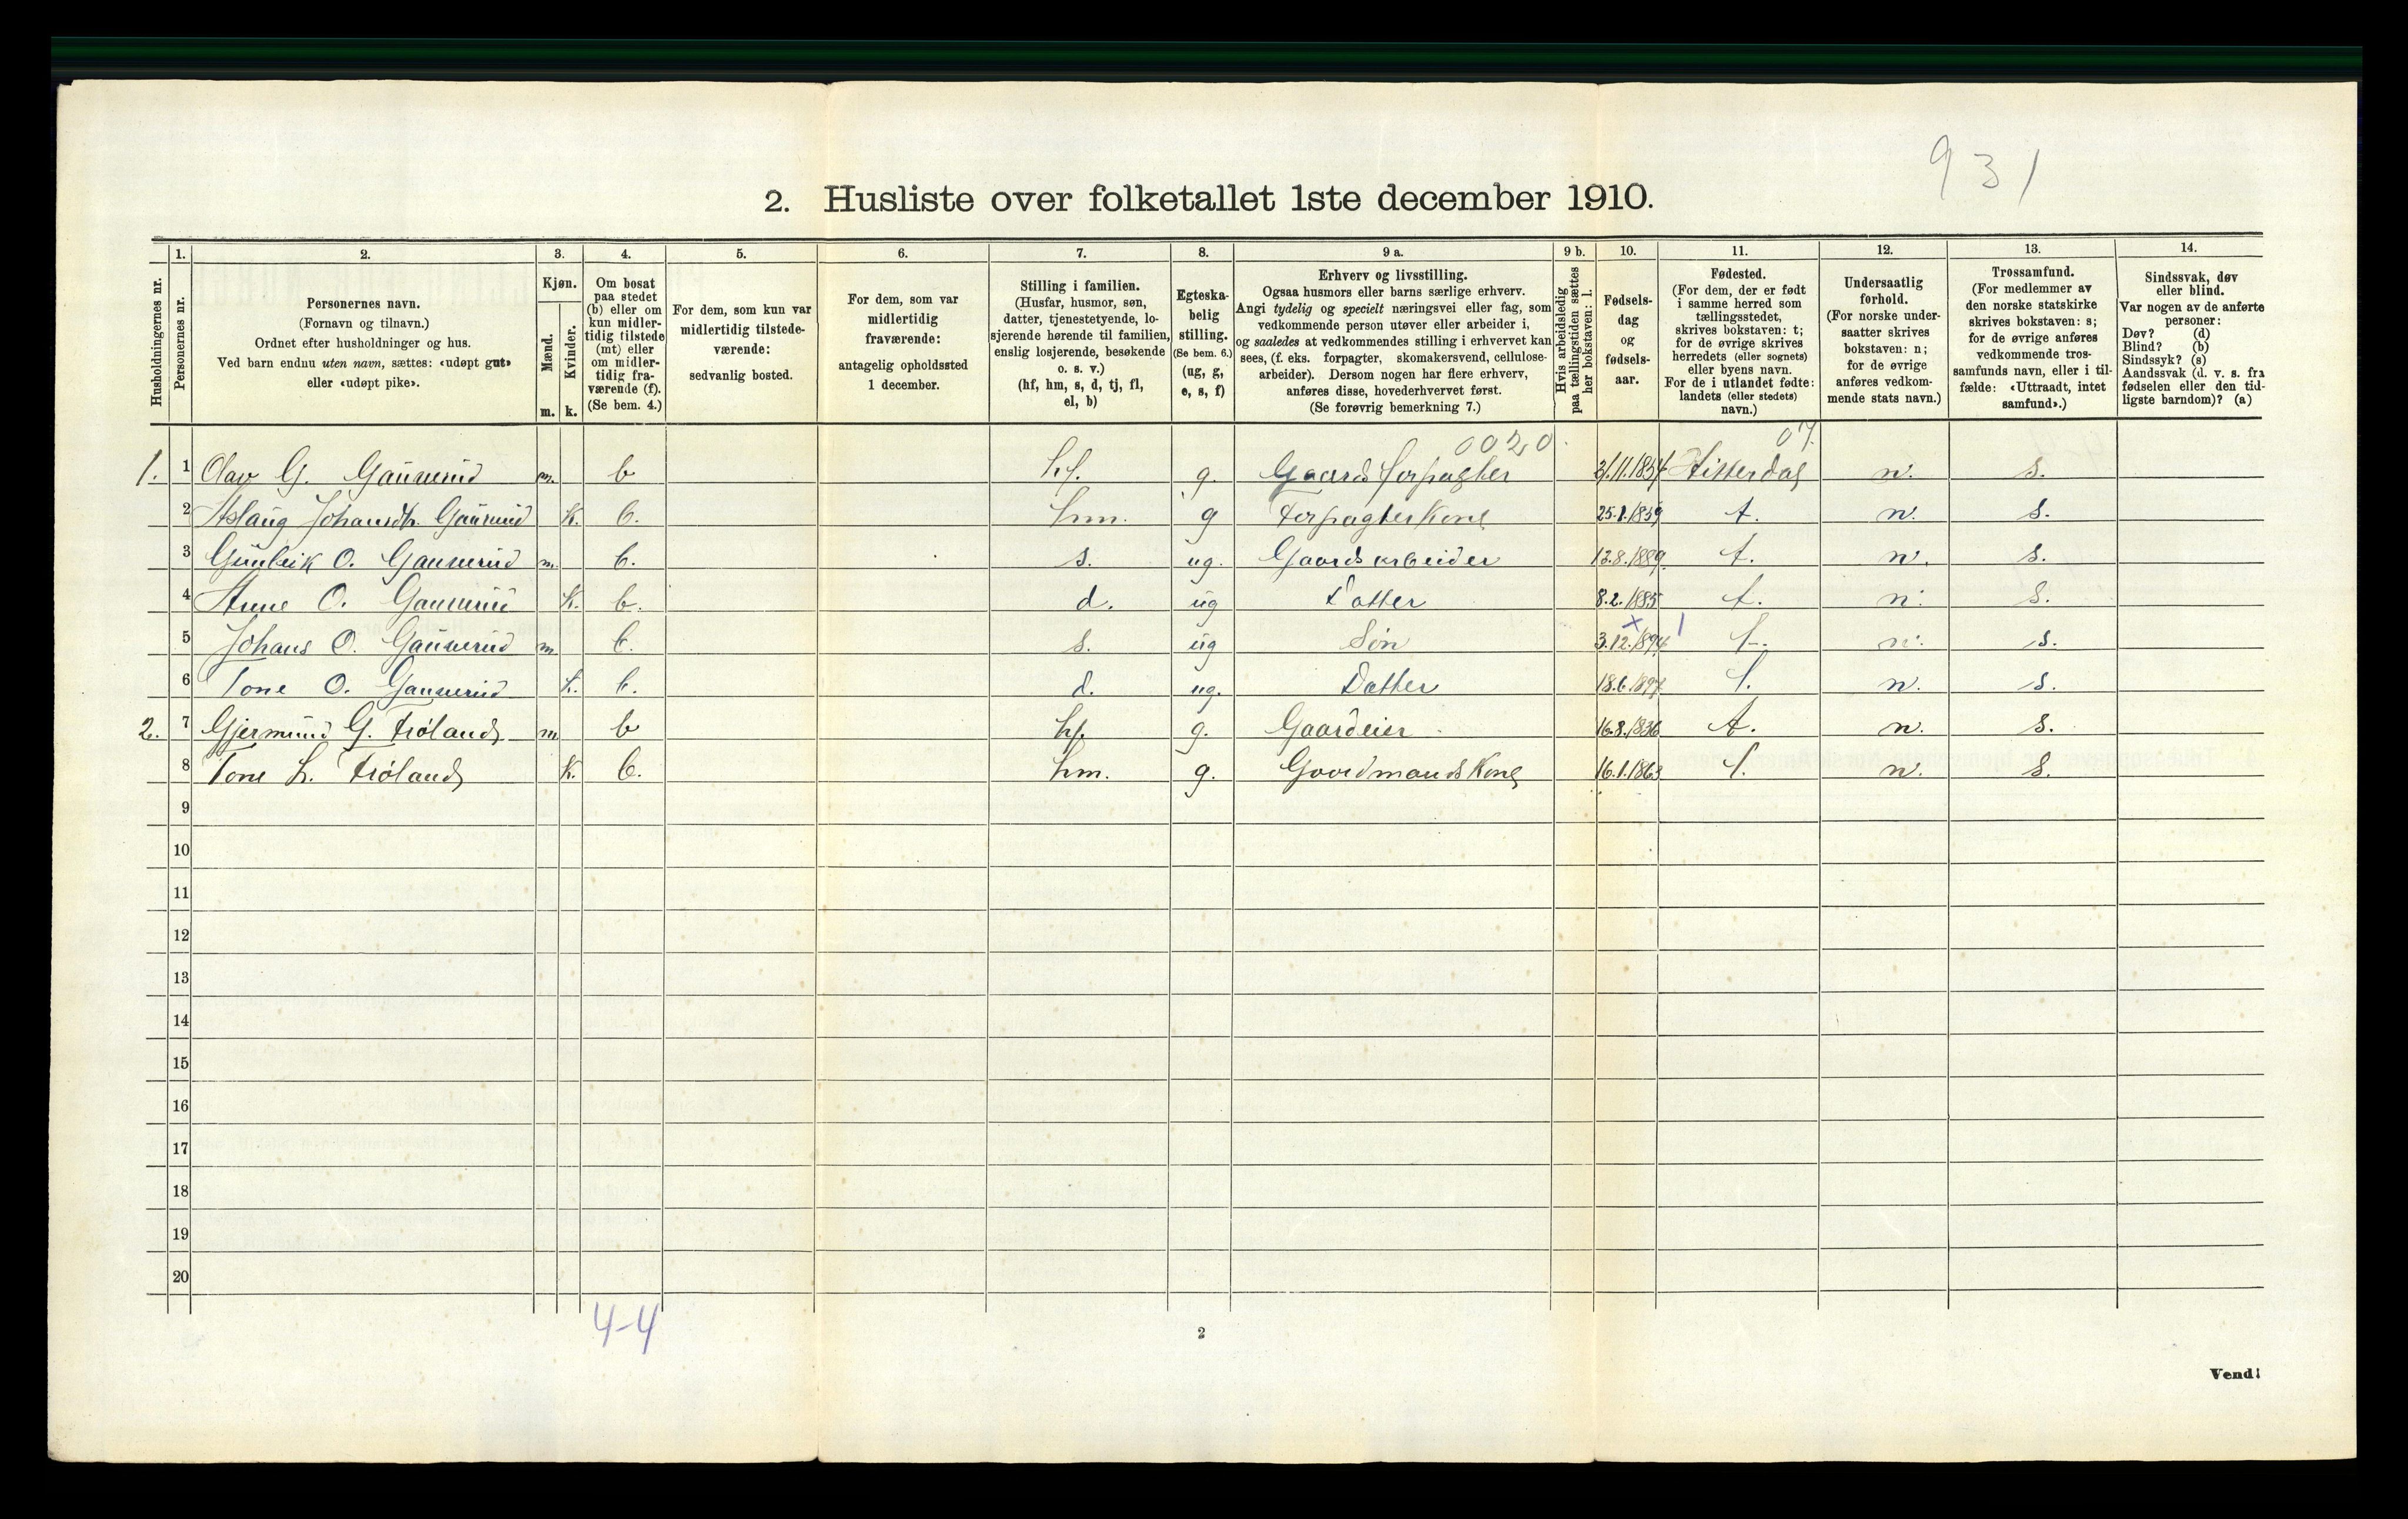 931
2. Husliste over folketallet 1ste december 1910.
Husholdningernes nr.
1. Personernes nr.
2. Personernes navn.
(Fornavn og tilnavn.)
Ordnet efter husholdninger og hus.
Ved barn endnu uten navn, sættes: «udøpt gut»
eller «udøpt pike».
3. Kjøn.
Mænd. m.
Kvinder. k.
4. Om bosat
paa stedet
(b) eller om
kun midler-
tidig tilstede
(mt) eller
om midler-
tidig fra-
værende (f).
(Se bem. 4.)
5. For dem, som kun var
midlertidig tilstede-
værende:
sedvanlig bosted.
6. For dem, som var
midlertidig
fraværende:
antagelig opholdssted
1 december.
7. Stilling i familien.
(Husfar, husmor, søn,
datter, tjenestetyende, lo-
sjerende hørende til familien,
enslig losjerende, besøkende
o. s. v.)
(hf, hm, s, d, tj, fl,
el, b)
8. Egteska-
belig
stilling.
(Se bem. 6.)
(ug, g,
e, s, f)
9 a. Erhverv og livsstilling.
Ogsaa husmors eller barns særlige erhverv.
Angi tydelig og specielt næringsvei eller fag, som
vedkommende person utøver eller arbeider i,
og saaledes at vedkommendes stilling i erhvervet kan
sees, (f. eks. forpagter, skomakersvend, cellulose-
arbeider). Dersom nogen har flere erhverv,
anføres disse, hovederhvervet først.
(Se forøvrig bemerkning 7.)
9 b. Hvis arbeidsledig
paa tællingstiden sættes
her bokstaven: l.
10. Fødsels-
dag
og
fødsels-
aar.
11. Fødested.
(For dem, der er født
i samme herred som
tællingsstedet,
skrives bokstaven: t;
for de øvrige skrives
herredets (eller sognets)
eller byens navn.
For de i utlandet fødte:
landets (eller stedets)
navn.)
12. Undersaatlig
forhold.
(For norske under-
saatter skrives
bokstaven: n;
for de øvrige
anføres vedkom-
mende stats navn.)
13. Trossamfund.
(For medlemmer av
den norske statskirke
skrives bokstaven: s;
for de øvrige anføres
vedkommende tros-
samfunds navn, eller i til-
fælde: «Uttraadt, intet
samfund».)
14. Sindssvak, døv
eller blind.
Var nogen av de anførte
personer:
Døv? (d)
Blind? (b)
Sindssyk? (s)
Aandssvak (d. v. s. fra
fødselen eller den tid-
ligste barndom)? (a)
0020 07
1. 1 Olav G. m. b hf. g. Gaardsforpagter Hitterdal n. s.
2 Aslaug Johansdtr. K. b. hm. g Forpagterkone 25.1.1859 t. n. s.
3 Gunleik O. m. b. s. ug. Gaardsarbeider 13.8.1889 t. n. s.
4 Anne O. K. b. d. ug Datter 8.2.1885 t. n. s.
5 Johans O. m b. s. ug Søn 3.12.1894 t. n. s.
6 Tone O. k. b. d. ug. Datter 18.6.1897 t. n. s.
2. 7 Gjermund G. Frøland m b hf. g. Gaardeier 16.8.1836 t. n. s.
8 Tone L. Frøland K. b. hm. g. Gaardmandskone 16.1.1863 t. n. s.
9
10
11
12
13
14
15
16
17
18
19
20
4-4
2
Vend!